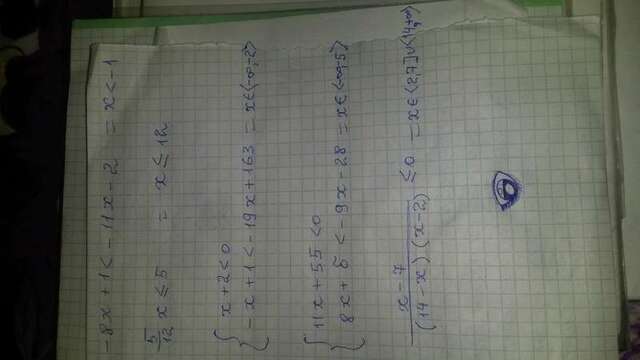 -8x + 1 < -11x - 2 = x < -1
5/12 x ≤ 5 = x ≤ 12
{ x + 2 < 0
-x + 1 < -19x + 163 = x ∈ (-∞, -2)
{ 11x + 55 < 0
8x + 5 < -9x - 28 = x ∈ (-∞, -5)
x - 7 / (14 - x) (x - 2) ≤ 0 = x ∈ (2,7] ∪ (14, +∞)